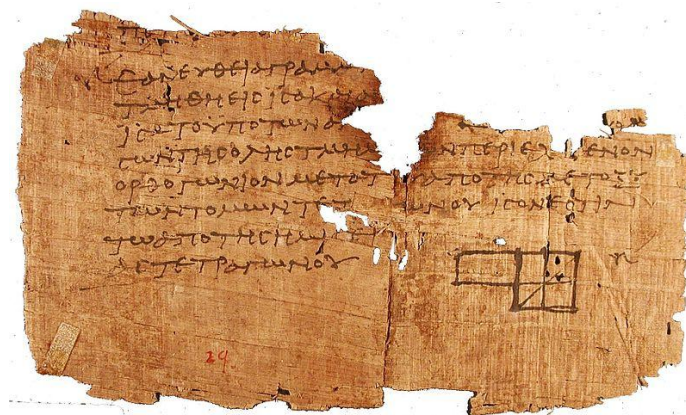 ΕΑΝ ΕΥΘΕΙΑ ΓΡΑΜΜ
ΤΜΗΘΗ ΕΙϹ ΙϹΑ ΚΑΙ Α
ΙϹΑ ΤΟ ΥΠΟ ΤΩΝ Α
ΤΩΝ ΤΗϹ ΟΛΗϹ ΤΜΗΜ Ν ΠΕΡΙΕΧΟΜΕΝΟΝ
ΟΡΘΟΓΩΝΙΟΝ ΜΕΤΑ ΤΟΥ ΑΠΟ ΤΗϹ ΜΕΤΟΞΥ
ΤΩΝ ΤΟΜΩΝ ΤΕΤ ΩΝΟΥ ΙϹΟΝ ΕϹΤΙΝ
ΤΩ ΑΠΟ ΤΗϹ ΗΜΙϹ
ΑϹ ΤΕΤΡΑΓΩΝΟΥ
29